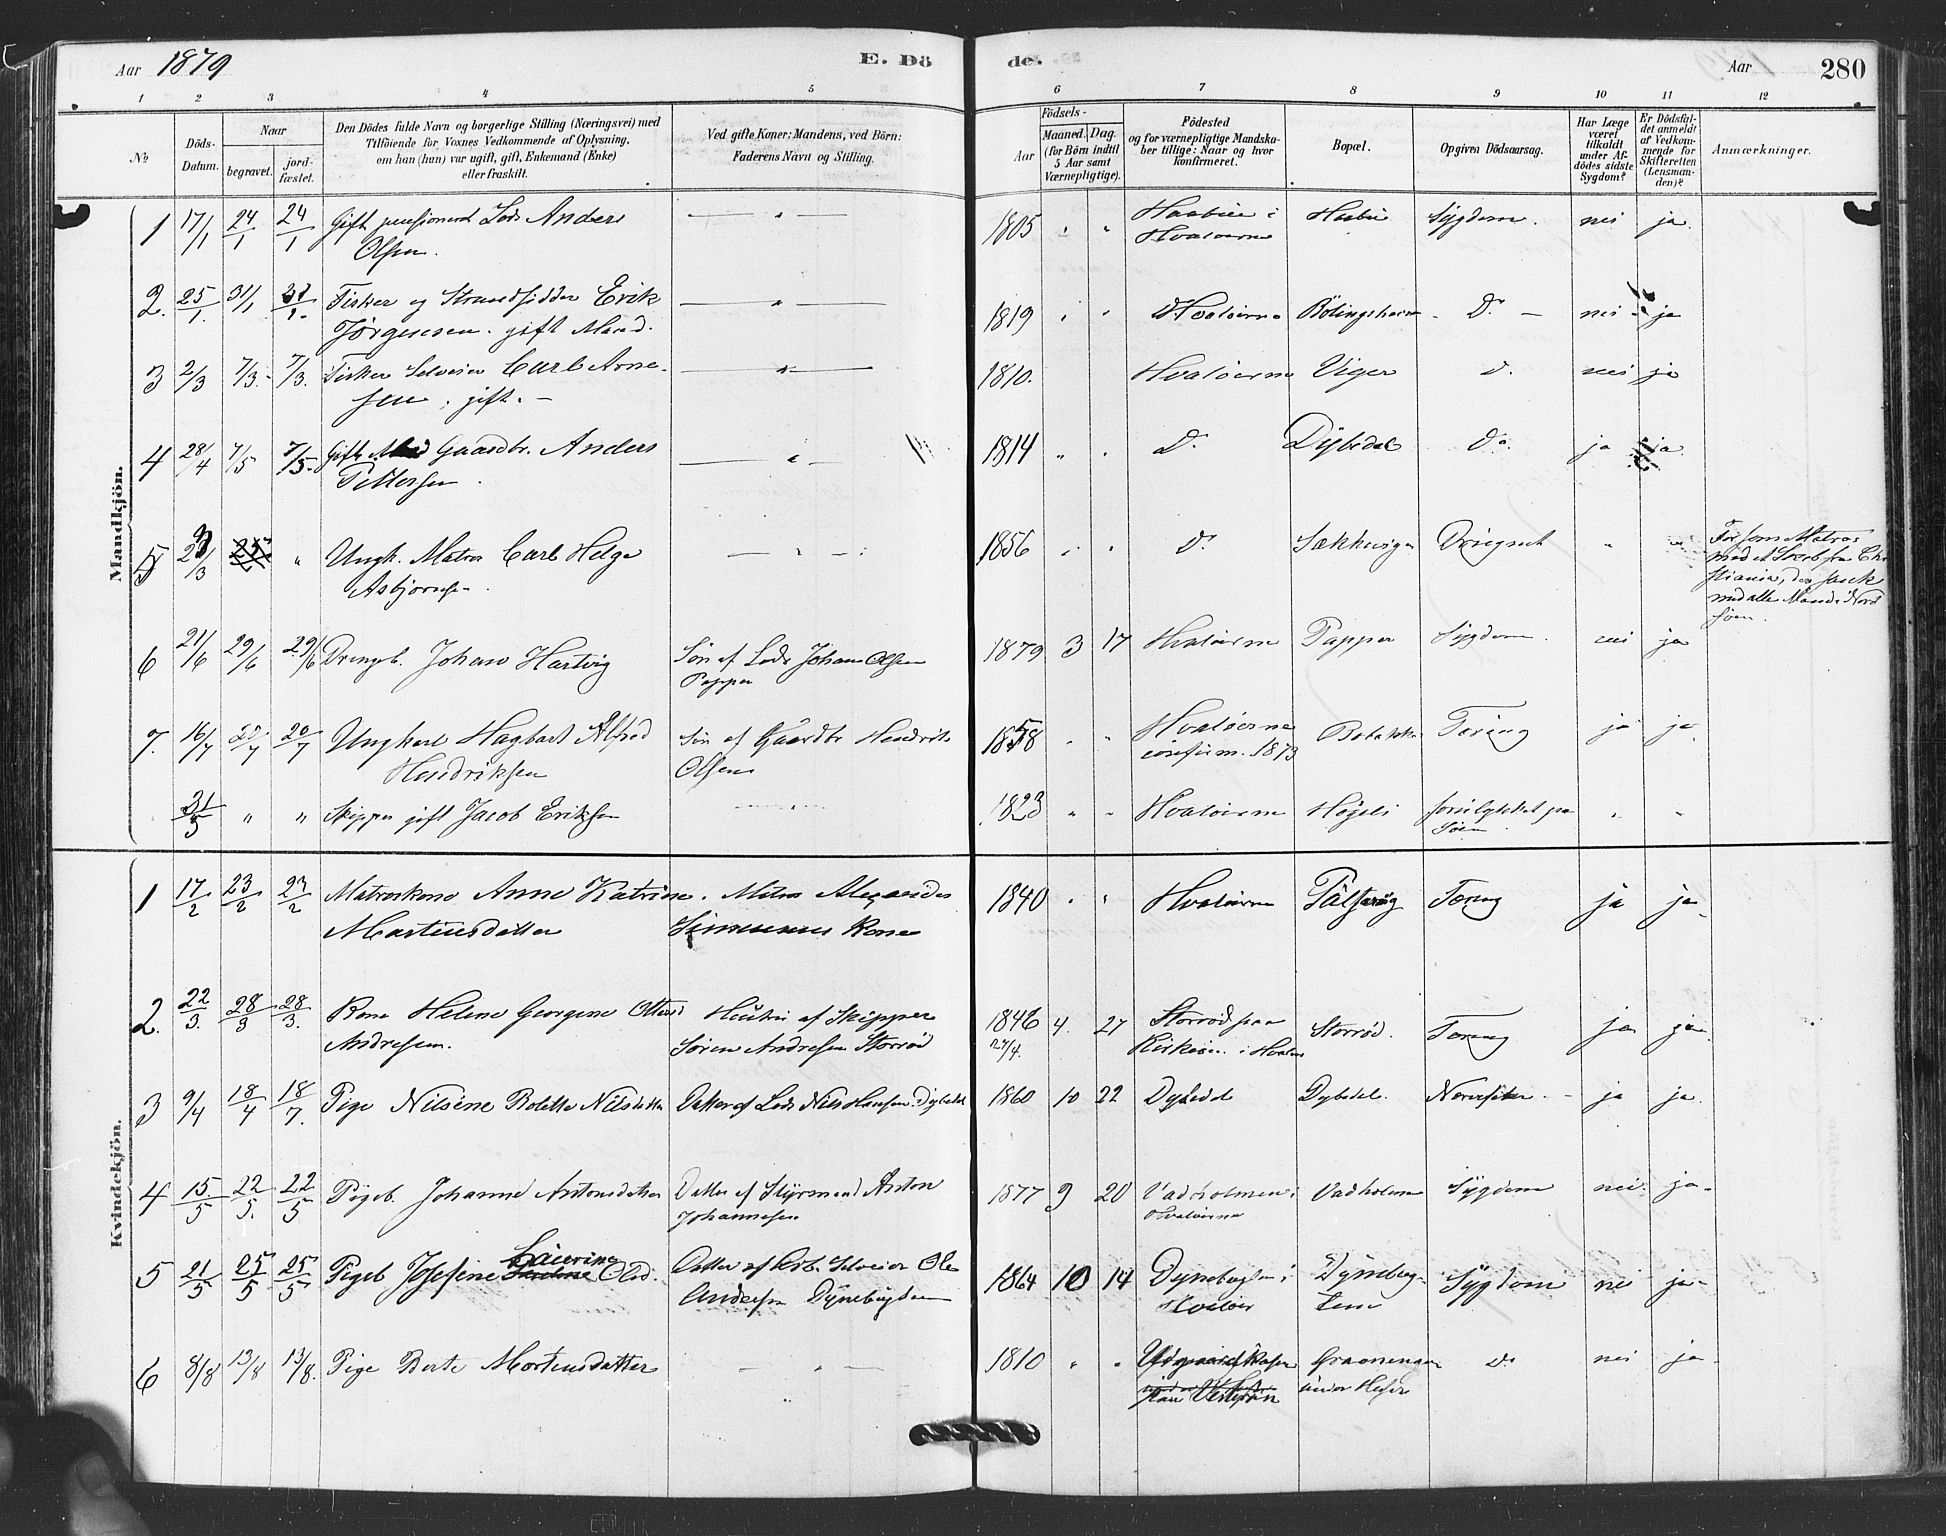 Aar 1879 E. Dö
de. Aar 280
1 2 3 4 5 6 7 8 9 10 11 12
No
Döds-Datum.
Naar
begravet.
jord-fæstet.
Den Dödes fulde Navn og borgerlige Stilling (Næringsvei) med
Tilföiende for Voxnes Vedkommende af Oplysning,
om han (hun) var ugift, gift, Enkemand (Enke)
eller fraskilt.
Ved gifte Koner: Mandens, ved Börn:
Faderens Navn og Stilling.
Födsels-
Aar
Maaned. Dag.
(for Börn indtil
5 Aar samt
Værnepligtige).
Födested
og for værnepligtige Mandska-
ber tillige: Naar og hvor
konfirmeret.
Bopæl.
Opgiven Dödsaarsag.
Har Læge
været
tilkaldt
under Af-
dödes sidste
Sygdom?
Er Dödsfal-
det anmeldt
af Vedkom-
mende for
Skifteretten
(Lensman-
den)?
Anmærkninger.
Mandkjön.
1 17/1 24/1 24/1 Gift pensioneret Lods Anders 1805 " " i Sygdom. nei ja.
Olsen. Hvaløerne
2. 25/1. 31/1 31/1. Fisker og Strandsidder Erik 1819 " " Hvaløerne D. nei ja
Jørgensen. gift Mand.
3 2/3 7/3. 7/3. Fisker Selveier Carl Arne- 1810. Hvaløerne Viger D. nei ja
sen, gift.
4 28/4 7/5 7/5. Gift Mand Gaardbr. Anders 1814 " " D. Dybedal D. ja ja
Pettersen.
5 /3 " Ungk. Matros Carl Helge 1856 " " D. " " For som Matros
Asbjørnsen. med et Skib fra Chri
stiania, der sank
med alle Mand i Nord
søen.
6 21/6 29/6 29/6 Drengeb. Johan Hartvig Søn af Lods Johan Olsen 1879 3 17 Hvaløerne Papper Sygdom. nei ja
Papper
7. 16/7 20/7 20/7 Ungkarl Hagbart Alfred Søn af Gaardbr Hendrik 1858 " " Hvaløerne Tæring ja ja
Hendriksen Olsen confirm. 1873
31/3 " " Skipper gift Jacob Eriksen 1823 " " Hvaløerne forulykket paa " "
Søen
Kvindekjön.
1 17/2 23/2 23/2 Matroskone Anne Katrine Matros Alexander 1840 " " Hvaløerne Tæring ja ja
Martinsdatter Kone
2. 22/3. 28/3 28/3. Kone Helene Georgine Hustru af Skipper 1846 4. 27 Storrød paa Storrød. Tæring ja ja
Andresen. Søren Andresen Storrød 27/4. Kirkeøen i
3 9/4 18/4 18/7. Pige Nilsine Bolette Nilsdatter Datter af Lods Nils Hansen Dybedal 1860 10 22 Dybedal Dybedal. Nervefeber ja ja.
4 15/5 22/5. 22/5 Pigeb. Johanne Antonsdatter Datter af Styrmand Anton 1877 9 20 Vadholmen i Vadholmen Sygdom nei ja
Johannesen Hvaløerne
5 21/5 25/5 25/5 Pigeb Josefine Olsd. Datter af Arb. Selveier Ole 1864 10 14 Dynebugten i Dynebug- Sygdom nei ja
Andersen Dynebugten Hvaløer ten
6 8/8 13/8 13/8. Pige Berte Mortensdatter 1810 " " D. nei ja
under